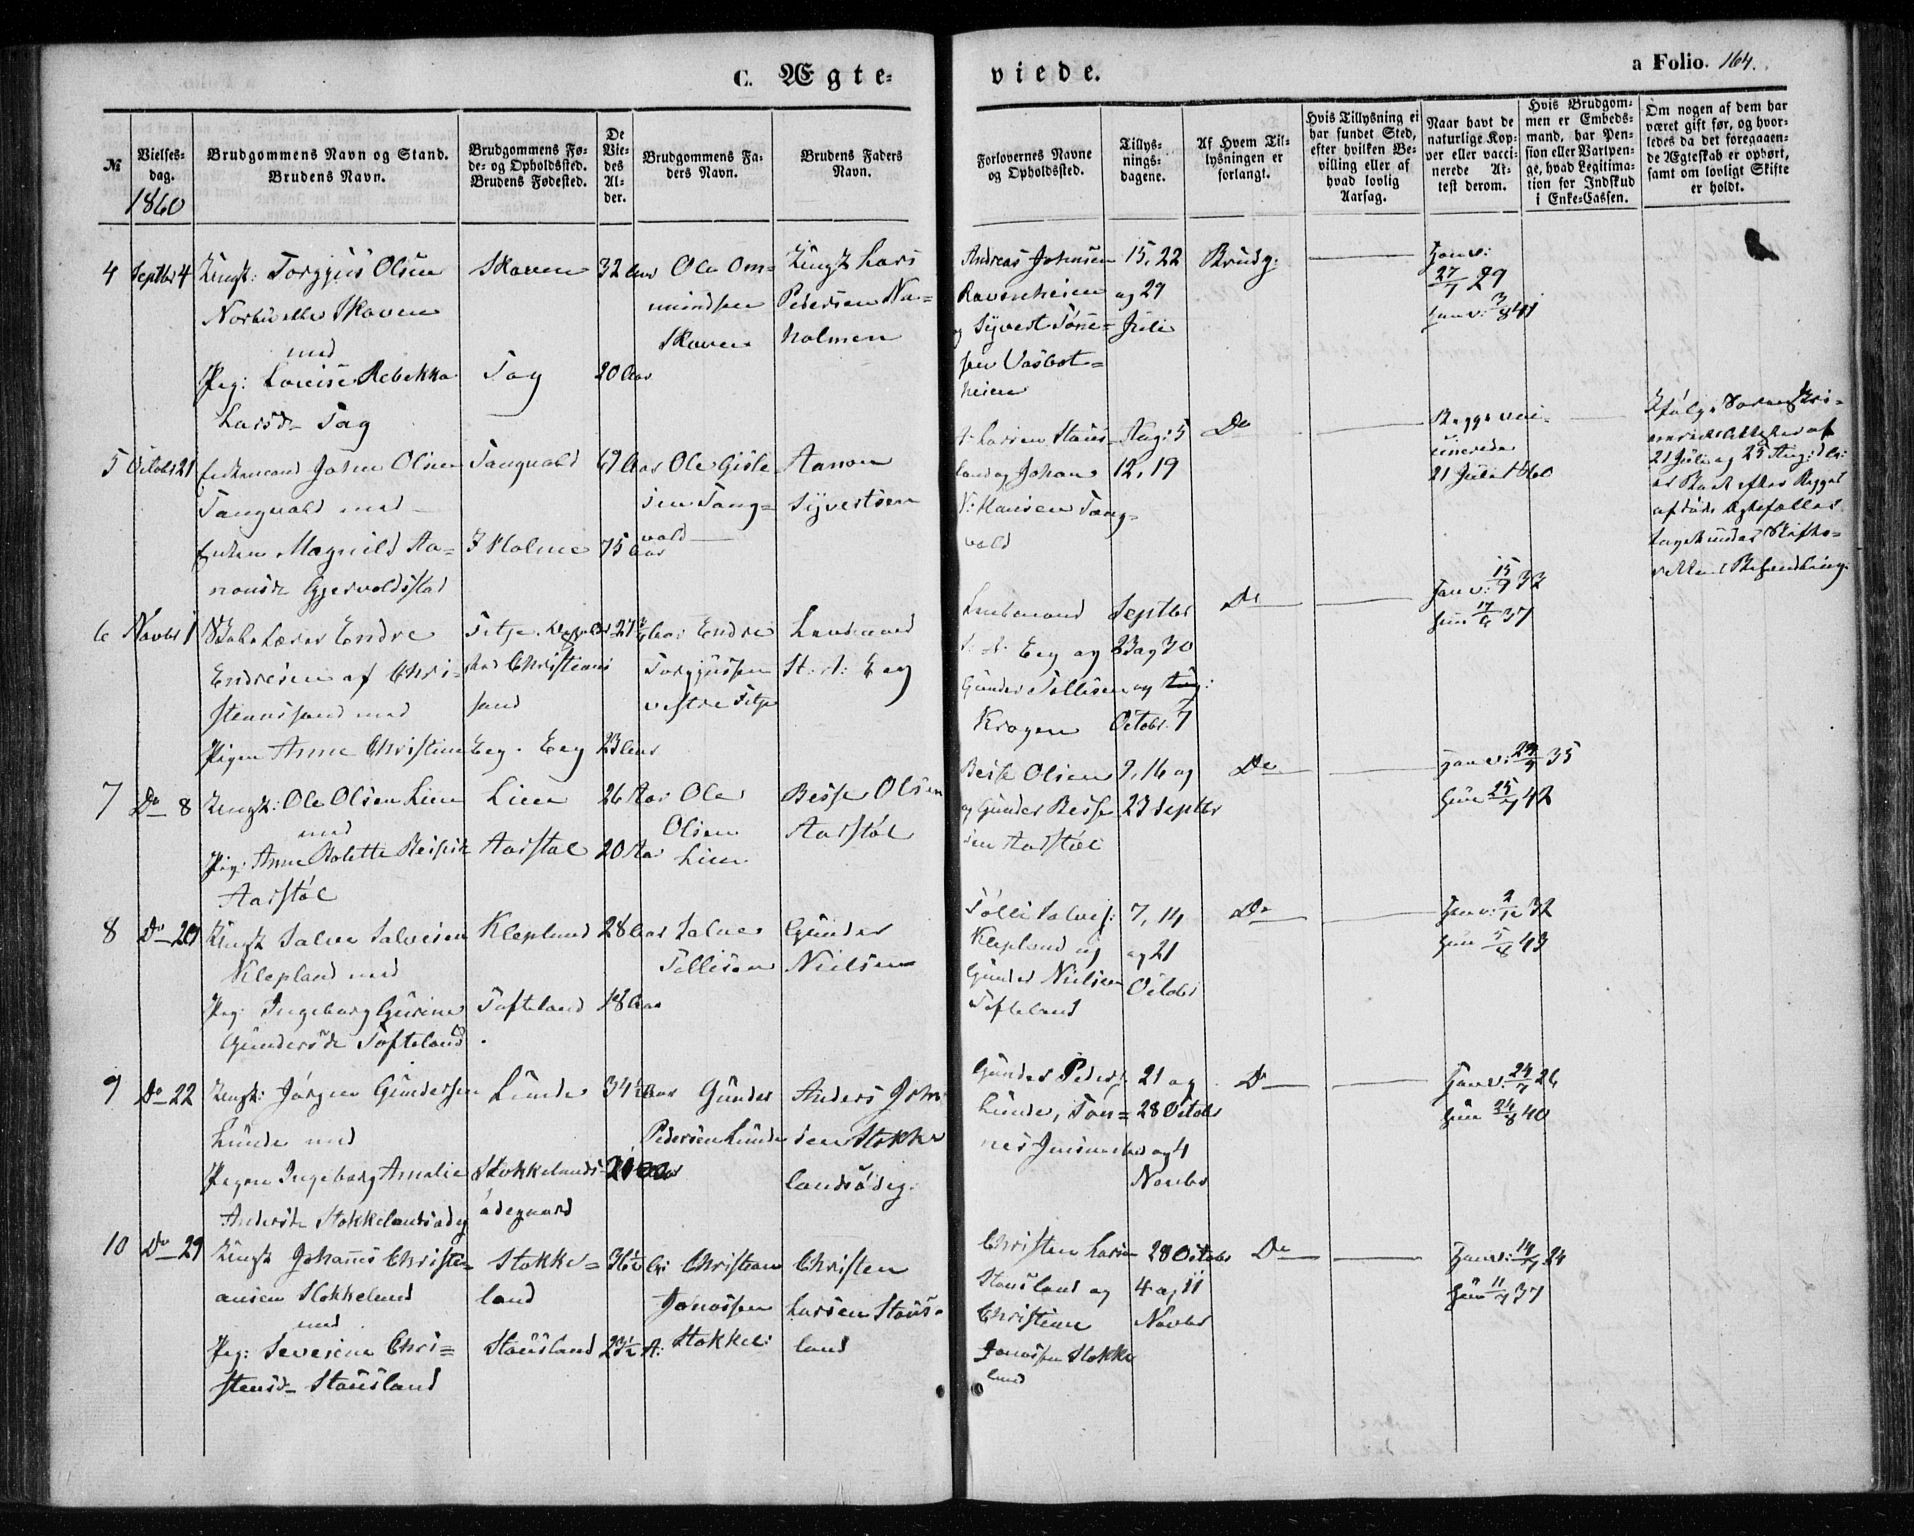 C. Ægte-
viede.
a Folio. 164.
№
Vielses-
dag.
1860
Brudgommens Navn og Stand.
Brudens Navn.
Brudgommens Fø-
de- og Opholdssted.
Brudens Fødested.
De
Vie-
des
Al-
der.
Brudgommens Fa-
ders Navn.
Brudens Faders
Navn.
Forlovernes Navne
og Opholdssted.
Tillys-
nings-
dagene.
Af Hvem Til-
lysningen er
forlangt.
Hvis Tillysning ei
har fundet Sted,
efter hvilken Be-
villing eller af
hvad lovlig
Aarsag.
Naar havt de
naturlige Kop-
per eller vacci-
nerede At-
test derom.
Hvis Brudgom-
men er Embeds-
mand, har Pen-
sion eller Vartpen-
ge, hvad Legitima-
tion for Indskud
i Enke-Cassen.
Om nogen af dem har
været gift før, og hvor-
ledes da det foregaaen-
de Ægteskab er ophørt,
samt om lovligt Skifte
er holdt.
4
Septbr 4
Ungk: Torgjus Olsen
Skoven
med
Pig: Lovise Rebekka
Larsd. Tag
Skoven
Tag
32 Aar
20 Aar
Ole Om-
mundsen
Skoven
Ungk Lars
Pedersen
holmen
Andreas Johnsen
Ravnheien
og Syvert
heien
15, 22
og 29
Juli
Brudg.
Han v:
27/1 29
hun v: 3/8 41
5
Octobr 21
Enkemand John Olsen
Tangvald med
Enken Magnild Aa-
nonsd. Gjervoldstad
Tangvald
Holme
69 Aar
75 Aar
Ole Gisle-
sen Tang-
vald
Aanon
Syvertsen
Larsen Staus-
land og Johan
Hansen Tang-
vald
Aug: 5
12, 19
Do
Begge vac-
cinerede
21 Juli 1860
Ifølge
Attester af
21 Juli og 25 Aug:
efter Begges
afdøde Ægtefæller
Skifte-
rettens Behandling
6
Novbr 1
Endre
Endresen af Chri-
stianssand med
Pigen Anne Christine Eeg
Fitje
Christians
sand
Eeg
27
23 Aar
Endre
Torgjussen
vestre Fitje
Lensmand
St. A: Eeg
Lensmand
S. A. Eeg og
Gunder Tellisen
Kragen
Septbr
23 og 30
og Aug:
Octobr 7
Do
Han v: 15/9 32
hun 17/6 37
7
Do 8
Ungk: Ole Olsen Lien
med
Pig: Anne Bolette Bessesd.
Aarstøl
Lien
Aarstøl
26 Aar
20 Aar
Ole
Olsen
Lien
Besse Olsen
Aarstøl
Besse Olsen
og Gunder Besse-
sen Aarstøl
9, 16 og
23 Septbr
Do
Han v: 29/9 35
hun 25/7 42
8
Do 20
Ungk Salve Salvesen
Klepland med
Pig: Ingeborg Gurine
Gundersd. Tofteland
Klepland
Tofteland
28 Aar
18 Aar
Salve
Tellisen
Gunder
Nielsen
Tølli Salves:
Klepland og
Gunder Nielsen
Tofteland
7, 14
og 21
Octobr
Do
Han v: 2/12 32
hun 5/8 43
9
Do 22
Ungk: Jørgen Gundersen
Lunde med
Pigen Ingeborg Amalie
Andersd. Stokkelandsødeg
Lunde
Stokkelands-
ødegaard
34½ Aar
Gunder
Pedersen Lunde
Anders John-
sen Stokke-
landsødeg.
Gunder Peders:
Lunde, Tøn-
nes
21 og
28 Octobr
og 4
Novbr
Do
Han v: 24/7 26
hun 24/8 40
10
Do 29
Ungk Johannes Christi-
ansen Stokkeland
med
Pig: Severine Chri-
stensd. Stausland
Stokke-
land
Stausland
36½ A:
23½ A:
Christian
Jonassen
Stokkel:
Christen
Larsen Staus-
land
Christen Larsen
Stausland og
Christian
Jonassen Stokke
land
28 Octobr
4 og 11
Novbr
Do
Han v: 14/7 24
hun 11/7 37